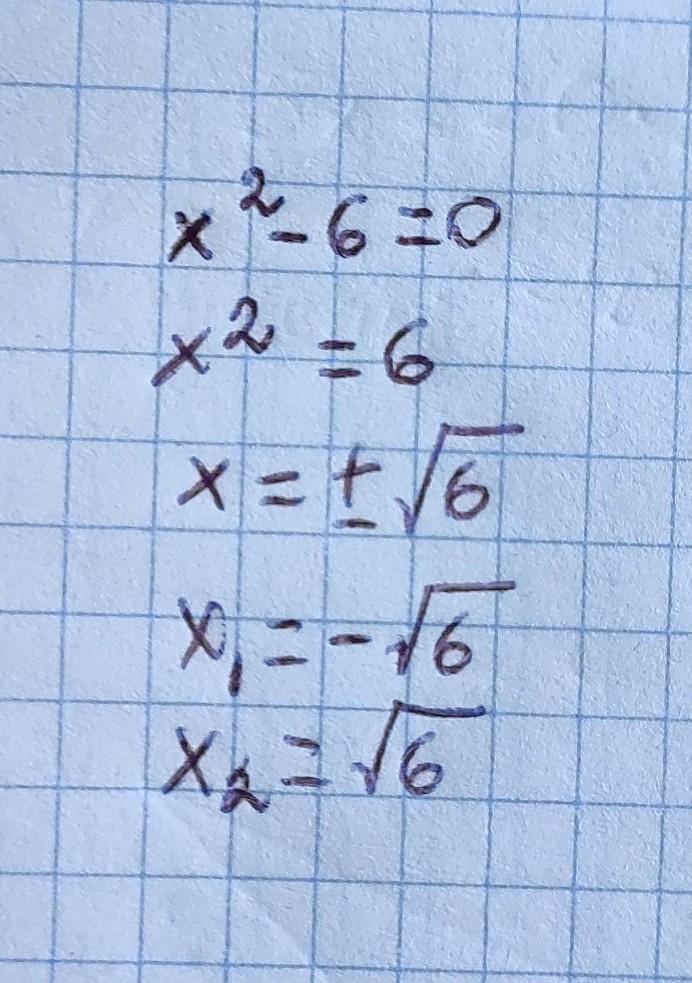 x² - 6 = 0
x² = 6
x = ± √6
x₁ = - √6
x₂ = √6